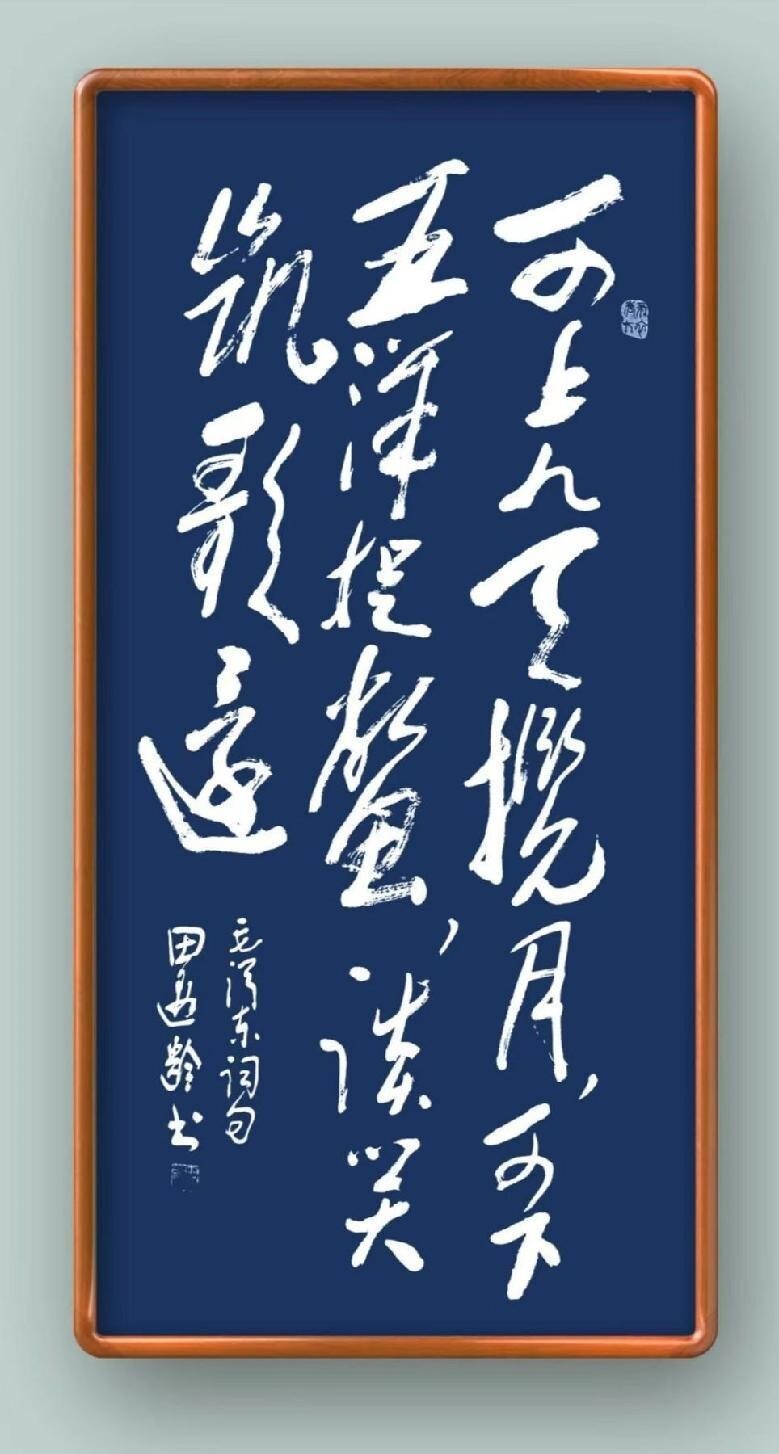 可上九天揽月，可下
五洋捉鳖，谈笑
凯歌還
毛泽东词句
田 龄书